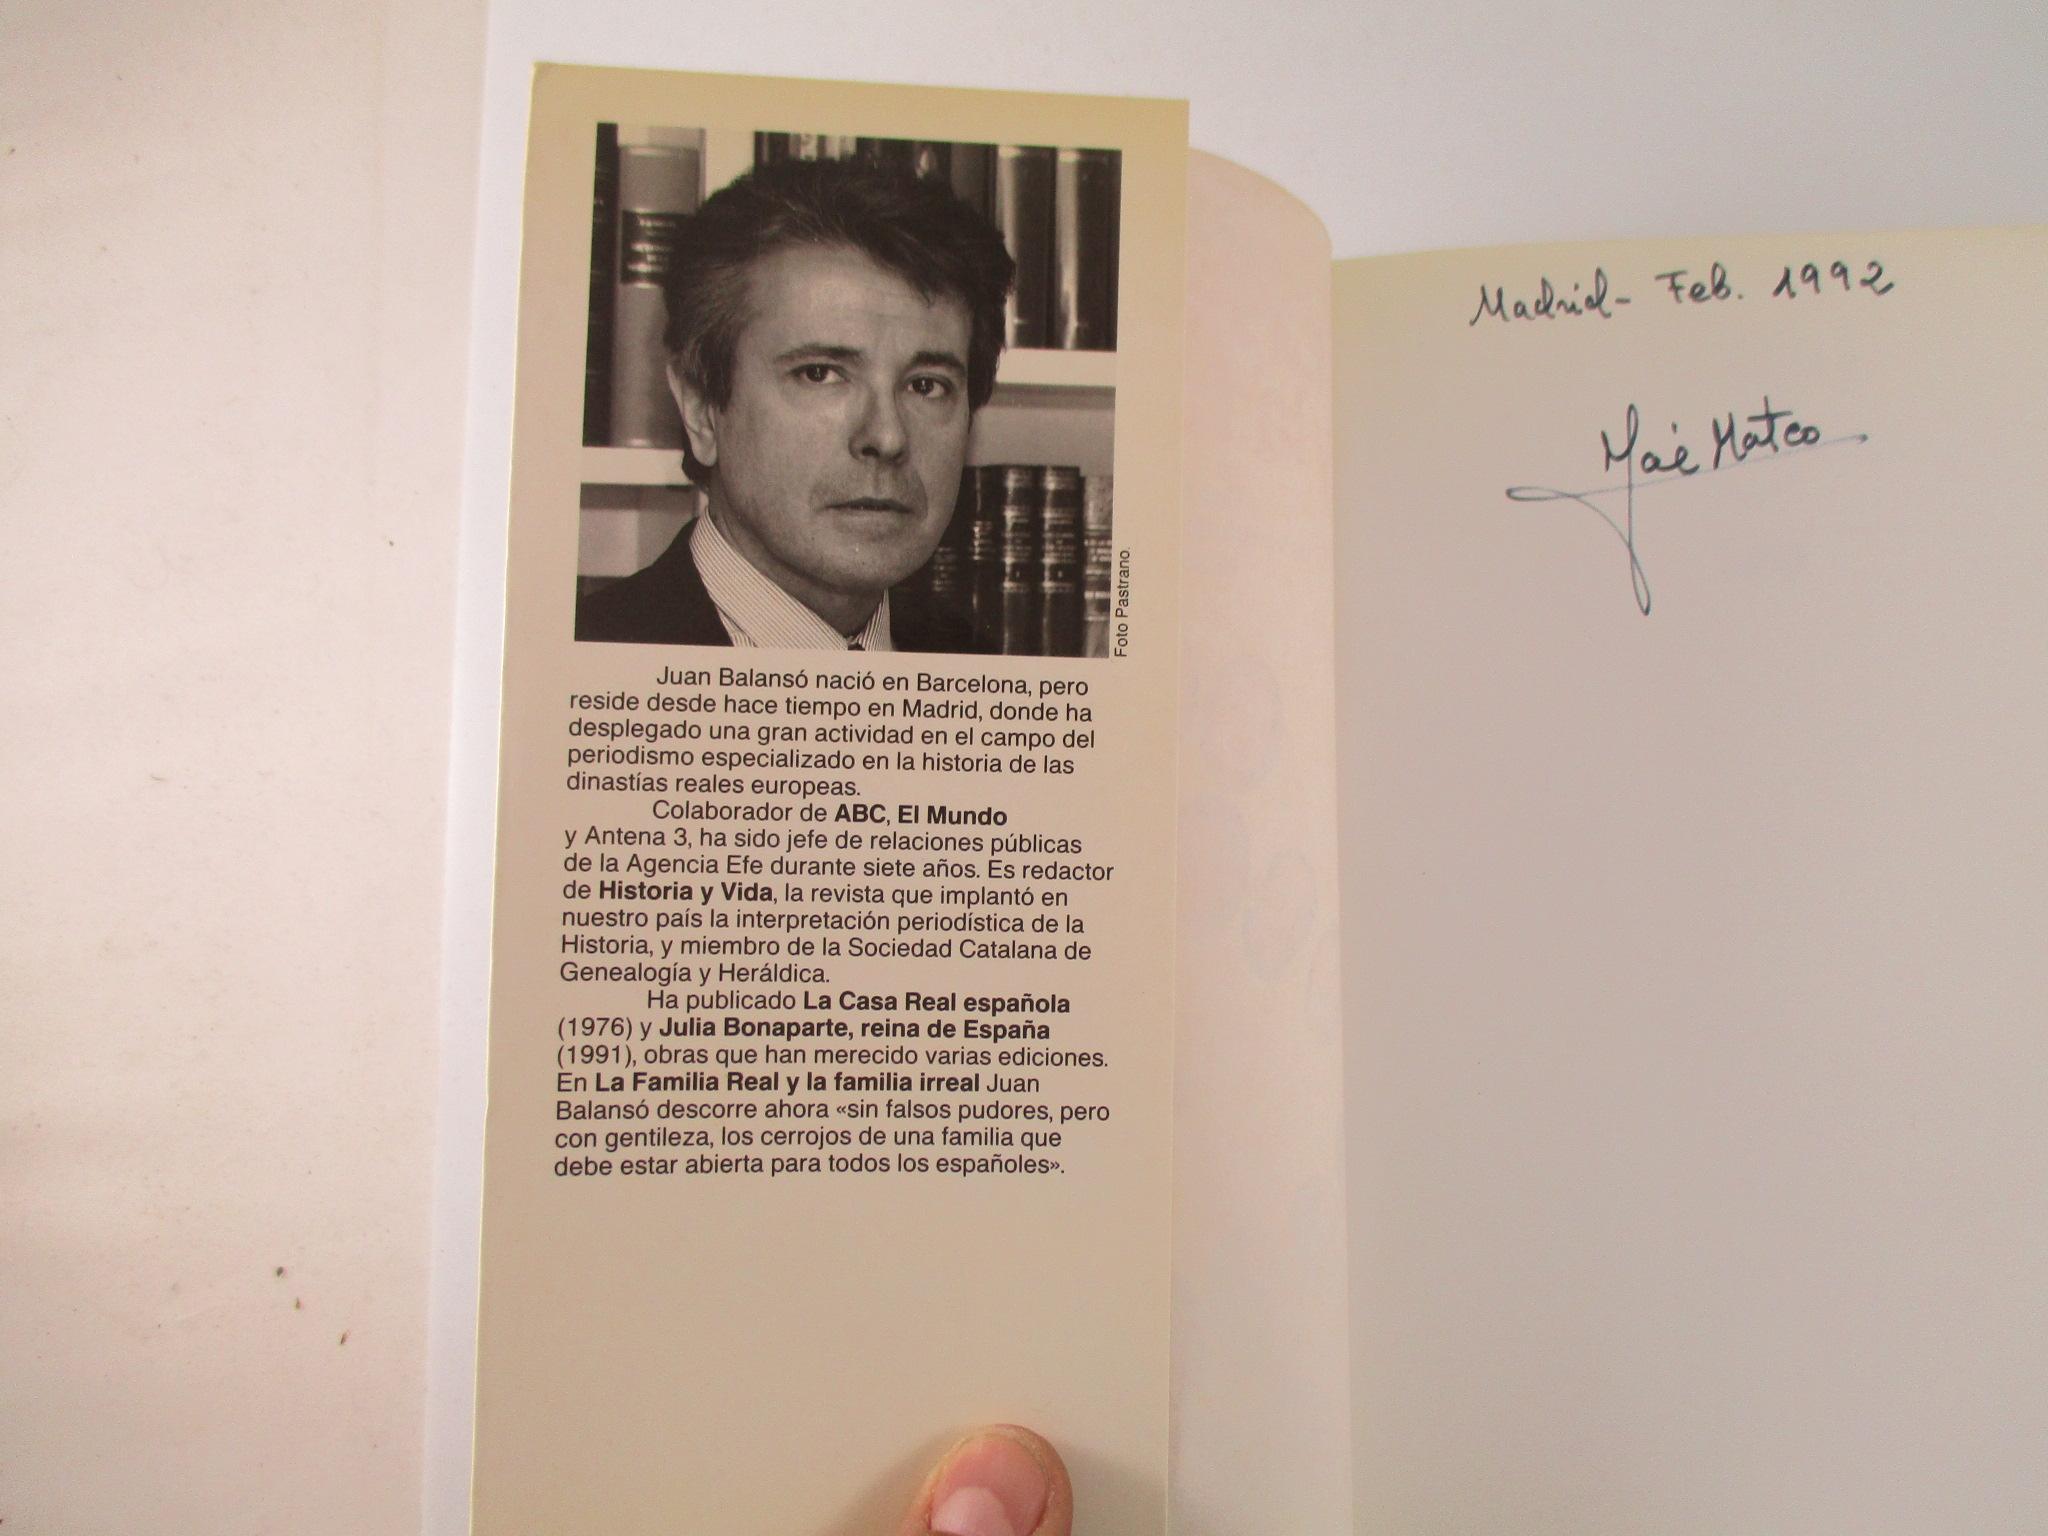 Foto Pastrano.
Juan Balansó nació en Barcelona, pero
reside desde hace tiempo en Madrid, donde ha
desplegado una gran actividad en el campo del
periodismo especializado en la historia de las
dinastías reales europeas.
Colaborador de ABC, El Mundo
y Antena 3, ha sido jefe de relaciones públicas
de la Agencia Efe durante siete años. Es redactor
de Historia y Vida, la revista que implantó en
nuestro país la interpretación periodística de la
Historia, y miembro de la Sociedad Catalana de
Genealogía y Heráldica.
Ha publicado La Casa Real española
(1976) y Julia Bonaparte, reina de España
(1991), obras que han merecido varias ediciones.
En La Familia Real y la familia irreal Juan
Balansó descorre ahora «sin falsos pudores, pero
con gentileza, los cerrojos de una familia que
debe estar abierta para todos los españoles».
Madrid- Feb. 1992
José Mateo